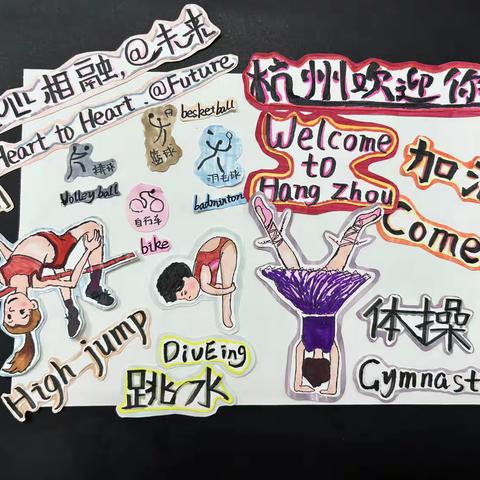 心相融,@未来
Heart to Heart.@Future
杭州欢迎你
Welcome
to
Hang zhou
加油
Come
besketball
篮球
排球
Volleyball
羽毛球
badminton
自行车
bike
High jump
DivEing
跳水
体操
Gymnast